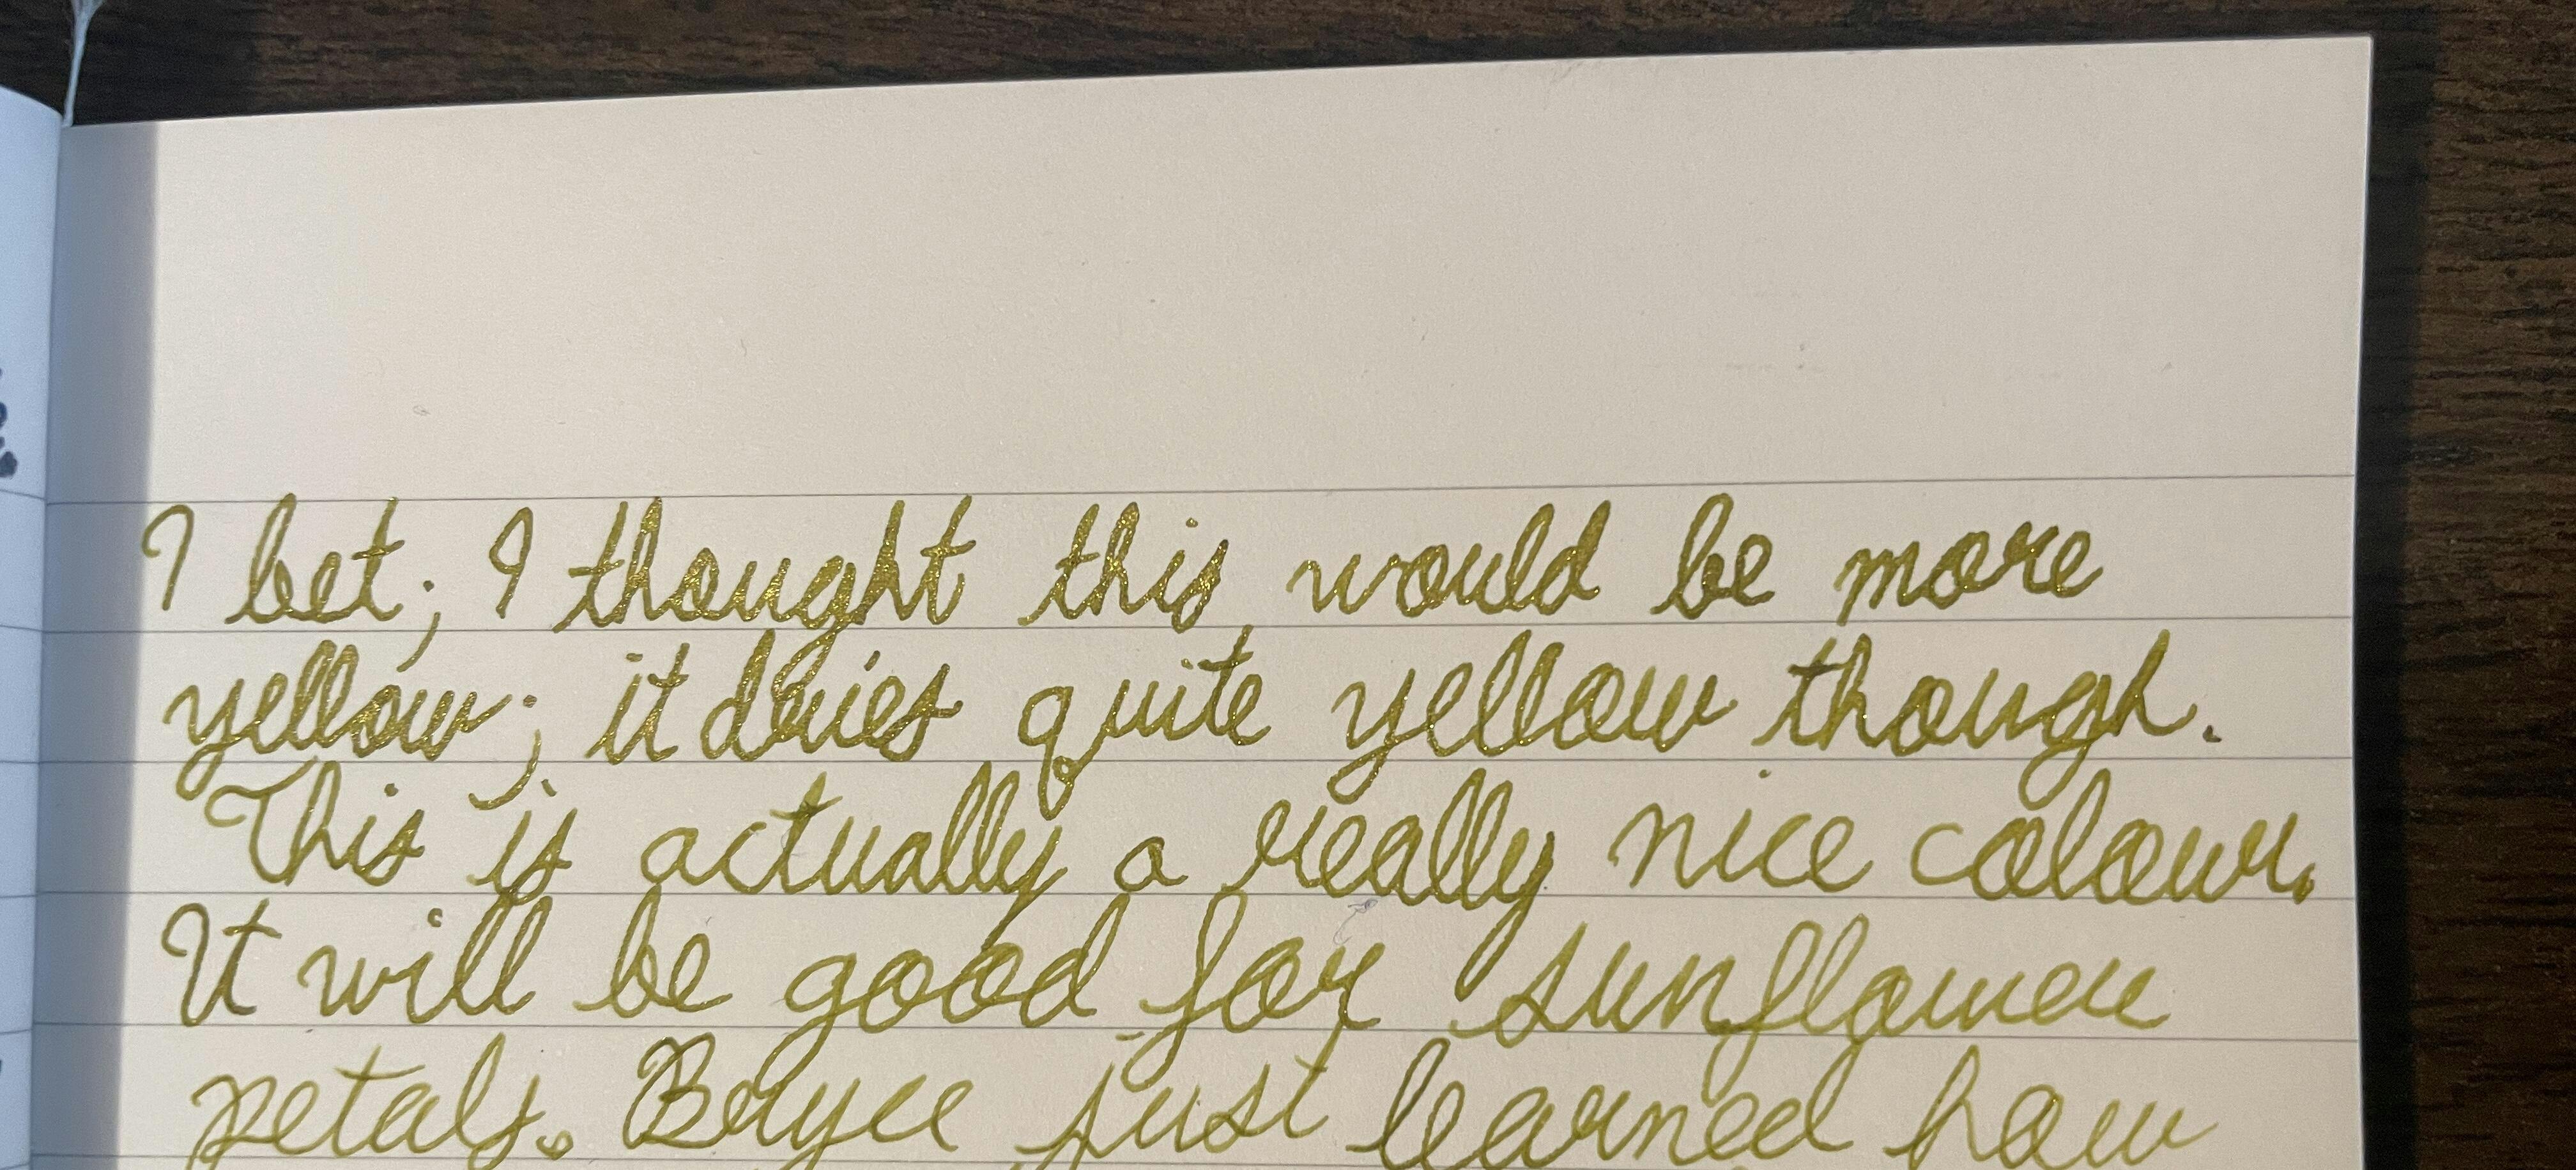 I bet; I thought this would be more
yellow; it dries quite yellow though.
This is actually a really nice colour.
It will be good for sunflower
petals. Bryce just learned how